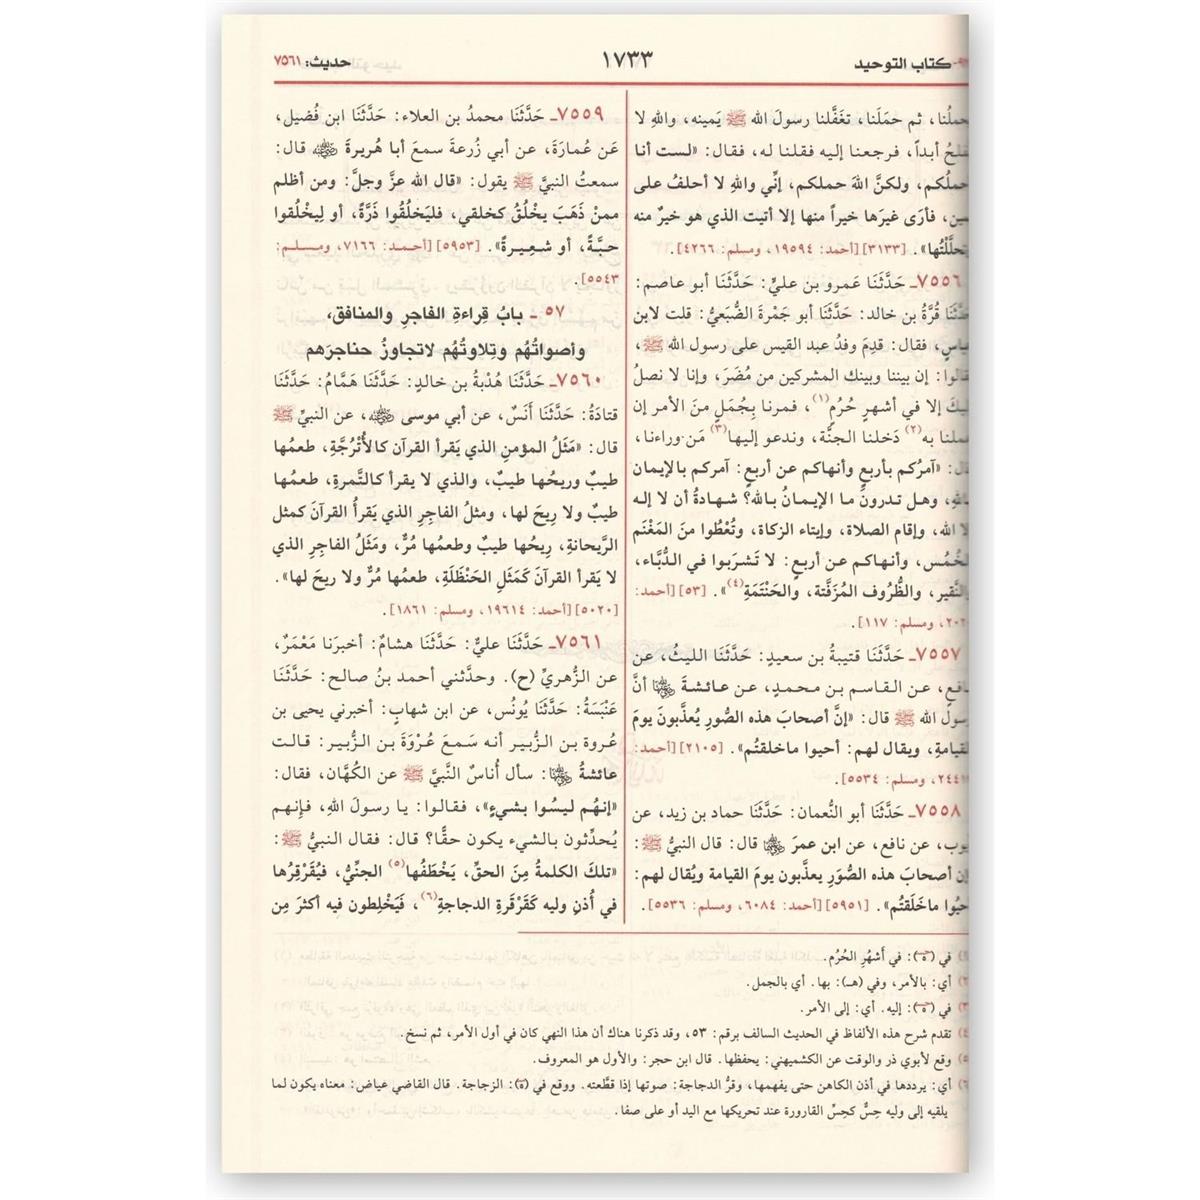 كتاب التوحيد
١٧٣٣
حديث: ٧٥٦١
حملنا، ثم حمَلَنا، تغَفَّلنا رسولَ الله ﷺ يَمينه، والله لا
أبداً، فرجعنا إليه فقلنا له، فقال: «لست أنا
ولكنَّ اللهَ حملكم، إنِّي والله لا أحلفُ على
فأرَى غيرَها خيراً منها إلا أتيت الذي هو خيرٌ منه
[٣١٣٣] [أحمد: ١٩٥٩٤، ومسلم: ٤٢٦٦].
٧٥٥٦ـ حَدَّثَنَا عَمرو بن عليٍّ: حَدَّثَنَا أبو عاصم:
قُرَّةُ بن خالد: حَدَّثَنَا أبو جَمْرَةَ الضُّبَعيُّ: قلت لابن
فقال: قدِمَ وفدُ عبد القيس على رسول الله ﷺ،
إن بيننا وبينك المشركين من مُضَرَ، وإنا لا نصلُ
إلا في أشهرٍ حُرُمٍ(١)، فمرنا بجُمَلٍ منَ الأمر إن
به(٢) دَخلنا الجنَّة، وندعو إليها(٣) مَن وراءنا،
«آمرُكم بأربع وأنهاكم عن أربع: آمركم بالإيمان
وهل تدرونَ ما الإيمانُ بالله؟ شهادةُ أن لا إله
الله، وإقام الصلاة، وإيتاء الزكاة، وتُعْطُوا منَ المَغْنَم
الخُمُس، وأنهاكم عن أربعٍ: لا تَشرَبوا في الدُّبَّاء،
والنَّقير، والظُّروف المُزَفَّتة، والحَنْتَمَةِ(٤)». [٥٣] [أحمد:
ومسلم: ١١٧].
٧٥٥٧ـ حَدَّثَنَا قتيبةُ بن سعيدٍ: حَدَّثَنَا الليثُ، عن
نافعٍ، عن القاسم بن محمدٍ، عن عائشةَ رضي الله عنها أنَّ
رسولَ الله ﷺ قال: «إنَّ أصحابَ هذه الصُّورِ يُعذَّبونَ يومَ
القيامةِ، ويقال لهم: أحيوا ما خلقتُم». [٢١٠٥] [أحمد:
ومسلم: ٥٥٣٤].
٧٥٥٨ـ حَدَّثَنَا أبو النُّعمان: حَدَّثَنَا حماد بن زيد، عن
أيوب، عن نافع، عن ابن عمرَ رضي الله عنهما قال: قال النبيُّ ﷺ:
إن أصحابَ هذه الصُّوَرِ يعذَّبون يومَ القيامة ويُقال لهم:
أحيُوا ما خَلَقتُم». [٥٩٥١] [أحمد: ٦٠٨٤، ومسلم: ٥٥٣٦].
٧٥٥٩ـ حَدَّثَنَا محمدُ بن العلاء: حَدَّثَنَا ابن فُضيل،
عَن عُمارَةَ، عن أبي زُرعةَ سمعَ أبا هُريرةَ رضي الله عنه قال:
سمعتُ النبيَّ ﷺ يقول: «قال الله عزَّ وجلَّ: ومن أظلم
ممنْ ذَهَبَ يخْلُقُ كخلقي، فليَخلُقُوا ذَرَّةً، أو لِيخْلُقوا
حبَّةً، أو شعِيرةً». [٥٩٥٣] [أحمد: ٧١٦٦، ومسلم:
٥٥٤٣].
٥٧ ـ بابُ قِراءةِ الفاجرِ والمنافق،
وأصواتُهُم وتِلاوتُهُم لا تجاوزُ حناجرَهم
٧٥٦٠ـ حَدَّثَنَا هُدْبةُ بن خالدٍ: حَدَّثَنَا هَمَّامُ: حَدَّثَنَا
قتادَةُ: حَدَّثَنَا أنَسٌ، عن أبي موسى رضي الله عنه، عن النبيِّ ﷺ
قال: «مَثَلُ المؤمنِ الذي يَقرأ القرآن كالأُتْرُجَّةِ، طعمُها
طيبٌ وريحُها طيبٌ، والذي لا يقرأ كالتَّمرةِ، طعمُها
طيبٌ ولا رِيحَ لها، ومثلُ الفاجِرِ الذي يَقرأُ القرآنَ كمثل
الرَّيحانةِ، رِيحُها طيبٌ وطعمُها مُرٌّ، ومَثَلُ الفاجِرِ الذي
لا يَقرأ القرآنَ كَمَثَلِ الحَنْظَلَةِ، طعمُها مُرٌّ ولا ريحَ لها».
[٥٠٢٠] [أحمد: ١٩٦١٤، ومسلم: ١٨٦١].
٧٥٦١ـ حَدَّثَنَا عليٌّ: حَدَّثَنَا هشامٌ: أخبرَنا مَعْمَرٌ،
عن الزُّهريِّ (ح). وحدَّثني أحمد بنُ صالح: حَدَّثَنَا
عَنْبَسَةُ: حَدَّثَنَا يُونُس، عن ابن شهابٍ: أخبرني يحيى بن
عُروة بن الزُّبير أنه سَمعَ عُرْوَةَ بن الزُّبير: قالت
عائشةُ رضي الله عنها: سأل أُناسٌ النَّبيَّ ﷺ عن الكُهَّان، فقال:
«إنهُم ليسُوا بشيءٍ»، فقالوا: يا رسولَ اللهِ، فإنهم
يُحدِّثون بالشيء يكون حقًّا؟ قال: فقال النبيُّ ﷺ:
«تلكَ الكلمةُ مِنَ الحقِّ، يَخْطَفُها(٥) الجنِّيُّ، فيُقَرْقِرُها
في أُذنِ وليه كَقَرْقَرةِ الدجاجةِ(٦)، فَيَخْلِطون فيه أكثرَ مِن
(١) في (ه): في أَشهُرِ الحُرُم.
(٢) أي: بالأمر، وفي (هـ): بها. أي بالجمل.
(٣) في (ه): إليه. أي: إلى الأمر.
(٤) تقدم شرح هذه الألفاظ في الحديث السالف برقم: ٥٣، وقد ذكرنا هناك أن هذا النهي كان في أول الأمر، ثم نسخ.
(٥) وقع لأبوي ذر والوقت عن الكشميهني: يحفظها. قال ابن حجر: والأول هو المعروف.
(٦) أي: يرددها في أذن الكاهن حتى يفهمها، وقرُّ الدجاجة: صوتها إذا قطّعته. ووقع في (ة): الزجاجة. قال القاضي عياض: معناه يكون لما
يلقيه إلى وليه حِسٌّ كحِسِّ القارورة عند تحريكها مع اليد أو على صفا.